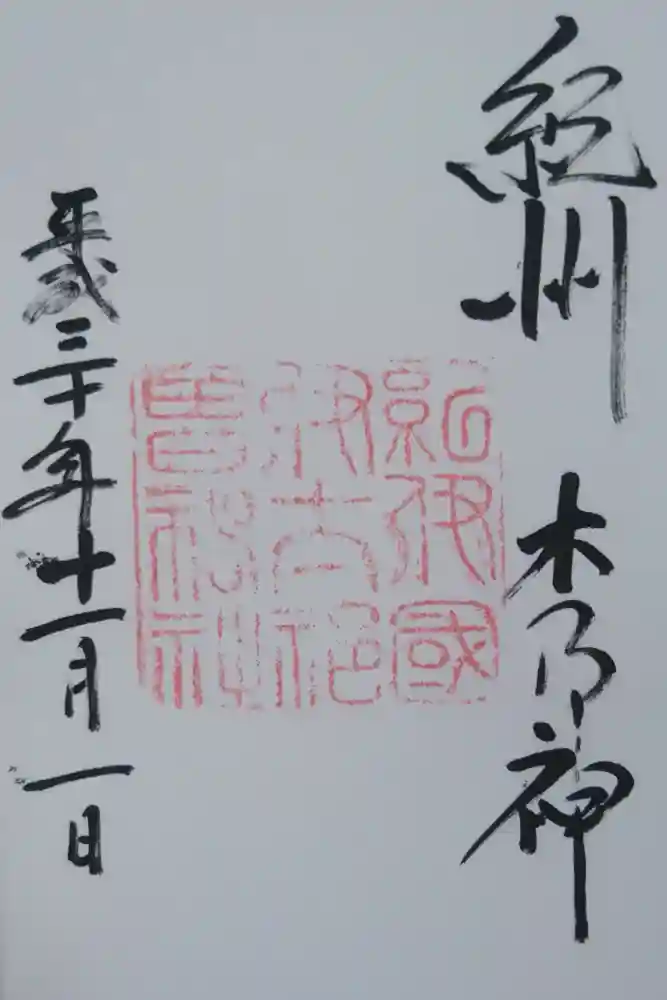 紀州 木乃神
紀伊國
伊太祁
曽神社
平成三十年十一月一日